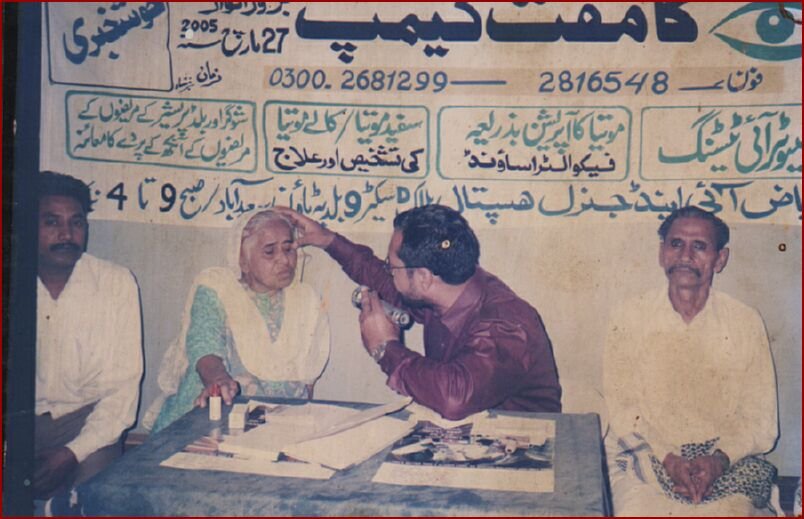 کا مفت کیمپ
بروز اتوار
27 مارچ سنہ 2005
خوشخبری
فون: 2816548 — 0300-2681299
آئی ٹیسٹنگ
موتیا کا آپریشن بذریعہ
فیکو الٹراساؤنڈ
سفید موتیا/کالے موتیا
کی تشخیص اور علاج
شوگر اور بلڈ پریشر کے مریضوں کے
مریضوں کے آنکھ کے پردے کا معائنہ
آئی اینڈ جنرل ہسپتال بلاک D سیکٹر 9 بلدیہ ٹاؤن سعیدآباد / صبح 9 تا 4